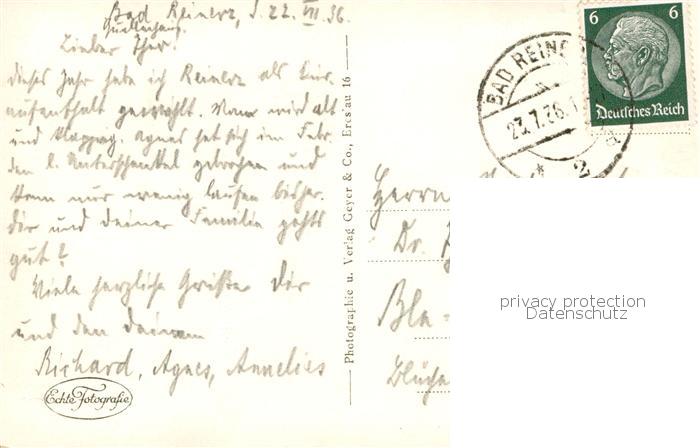 Bad Reinerz, d. 22. VII 36.
Lieber
dieses Jahr habe ich Reinerz als Kur-
aufenthalt gewählt. Mann wird alt
und klapprig, Agnes hat sich im Febr.
den l. Unterschenkel gebrochen und
kann nur wenig laufen bisher.
Dir und deiner Familie gehts
gut?
Viele herzliche Grüße Dir
und den deinen
Richard, Agnes, Annelies
Echte Fotografie
Photographie u. Verlag Geyer & Co., Breslau 16
BAD REINE
23.7.36.1
* 2
6 6
Deutsches Reich
Herrn
Dr.
privacy protection
Datenschutz